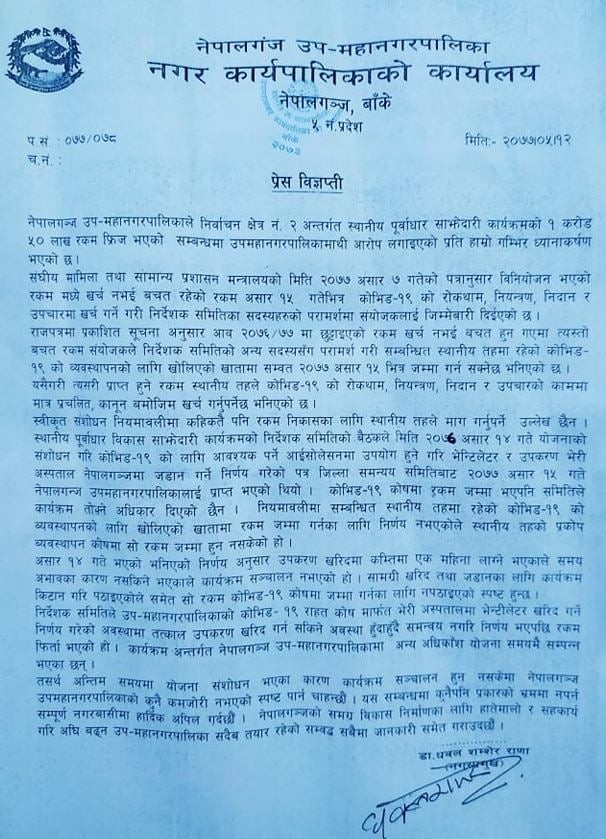 नेपालगंज उप-महानगरपालिका
नगर कार्यपालिकाको कार्यालय
नेपालगञ्ज, बाँके
५ नं.प्रदेश
२०७३
प सं : ०७७/०७८
मिति:- २०७७।०५।१२
च.नं. :
प्रेस विज्ञप्ती
नेपालगञ्ज उप-महानगरपालिकाले निर्वाचन क्षेत्र नं. २ अन्तर्गत स्थानीय पूर्वाधार साझेदारी कार्यक्रमको १ करोड
५० लाख रकम फ्रिज भएको सम्बन्धमा उपमहानगरपालिकामाथी आरोप लगाइएको प्रति हाम्रो गम्भिर ध्यानाकर्षण
भएको छ ।
संघीय मामिला तथा सामान्य प्रशासन मन्त्रालयको मिति २०७७ असार ७ गतेको पत्रानुसार विनियोजन भएको
रकम मध्ये खर्च नभई बचत रहेको रकम असार १५ गतेभित्र कोभिड-१९ को रोकथाम, नियन्त्रण, निदान र
उपचारमा खर्च गर्ने गरी निर्देशक समितिका सदस्यहरुको परामर्शमा संयोजकलाई जिम्मेबारी दिईएको छ ।
राजपत्रमा प्रकाशित सूचना अनुसार आव २०७६/७७ मा छुट्टाइएको रकम खर्च नभई बचत हुन गएमा त्यस्तो
बचत रकम संयोजकले निर्देशक समितिको अन्य सदस्यसंग परामर्श गरी सम्बन्धित स्थानीय तहमा रहेको कोभिड-
१९ को व्यवस्थापनको लागि खोलिएको खातामा सम्वत २०७७ असार १५ भित्र जम्मा गर्न सक्नेछ भनिएको छ ।
यसैगरी त्यसरी प्राप्त हुने रकम स्थानीय तहले कोभिड-१९ को रोकथाम, नियन्त्रण, निदान र उपचारको काममा
मात्र प्रचलित, कानून बमोजिम खर्च गर्नुपर्नेछ भनिएको छ ।
स्वीकृत संशोधन नियमावलीमा कहिकतै पनि रकम निकासका लागि स्थानीय तहले माग गर्नुपर्ने उल्लेख छैन ।
स्थानीय पूर्वाधार विकास साझेदारी कार्यक्रमको निर्देशक समितिको बैठकले मिति २०७6 असार १४ गते योजनाको
संशोधन गरि कोभिड-१९ को लागि आवश्यक पर्ने आईसोलेसनमा उपयोग हुने गरि भेन्टिलेटर र उपकरण भेरी
अस्पताल नेपालगञ्जमा जडान गर्ने निर्णय गरेको पत्र जिल्ला समन्वय समितिबाट २०७७ असार १५ गते
नेपालगन्ज उपमहानगरपालिकालाई प्राप्त भएको थियो । कोभिड-१९ कोषमा रकम जम्मा भएपनि समितिले
कार्यक्रम तोक्ने अधिकार दिएको छैन । नियमावलीमा सम्बन्धित स्थानीय तहमा रहेको कोभिड-१९ को
ब्यवस्थापनको लागि खोलिएको खातामा रकम जम्मा गर्नका लागि निर्णय नभएकोले स्थानीय तहको प्रकोप
ब्यवस्थापन कोषमा सो रकम जम्मा हुन नसकेको हो ।
असार १४ गते भएको भनिएको निर्णय अनुसार उपकरण खरिदमा कम्तिमा एक महिना लाग्ने भएकाले समय
अभावका कारण नसकिने भएकाले कार्यक्रम सञ्चालन नभएको हो । सामाग्री खरिद तथा जडानका लागि कार्यक्रम
किटान गरि पठाइएकोले समेत सो रकम कोभिड-१९ कोषमा जम्मा गर्नका लागि नपठाइएको स्पष्ट हुन्छ ।
निर्देशक समितिले उप-महानगरपालिकाको कोभिड- १९ राहत कोष मार्फत भेरी अस्पतालमा भेन्टीलेटर खरिद गर्ने
निर्णय गरेको अवस्थामा तत्काल उपकरण खरिद गर्न सकिने अवस्था हुँदाहुँदै समन्वय नगरि निर्णय भएपछि रकम
फिर्ता भएको हो । कार्यक्रम अन्तर्गत नेपालगञ्ज उपमहानगरपालिकामा अन्य अधिकाँश योजना समयमै सम्पन्न
भएका छन् ।
तसर्थ अन्तिम समयमा योजना संशोधन भएका कारण कार्यक्रम सञ्चालन हुन नसकेमा नेपालगञ्ज
उपमहानगरपालिकाको कुनै कमजोरी नभएको स्पष्ट पार्न चाहन्छौ । यस सम्बन्धमा कुनैपनि प्रकारको भ्रममा नपर्न
सम्पूर्ण नगरबासीमा हार्दिक अपिल गर्दछौं । नेपालगञ्जको समग्र विकास निर्माणका लागि हातेमालो र सहकार्य
गरि अघि बढ्न उप-महानगरपालिका सदैब तयार रहेको सम्वद्ध सबैमा जानकारी समेत गराउदछौं ।
डा.धवल शम्शेर राणा
(नगरप्रमुख)